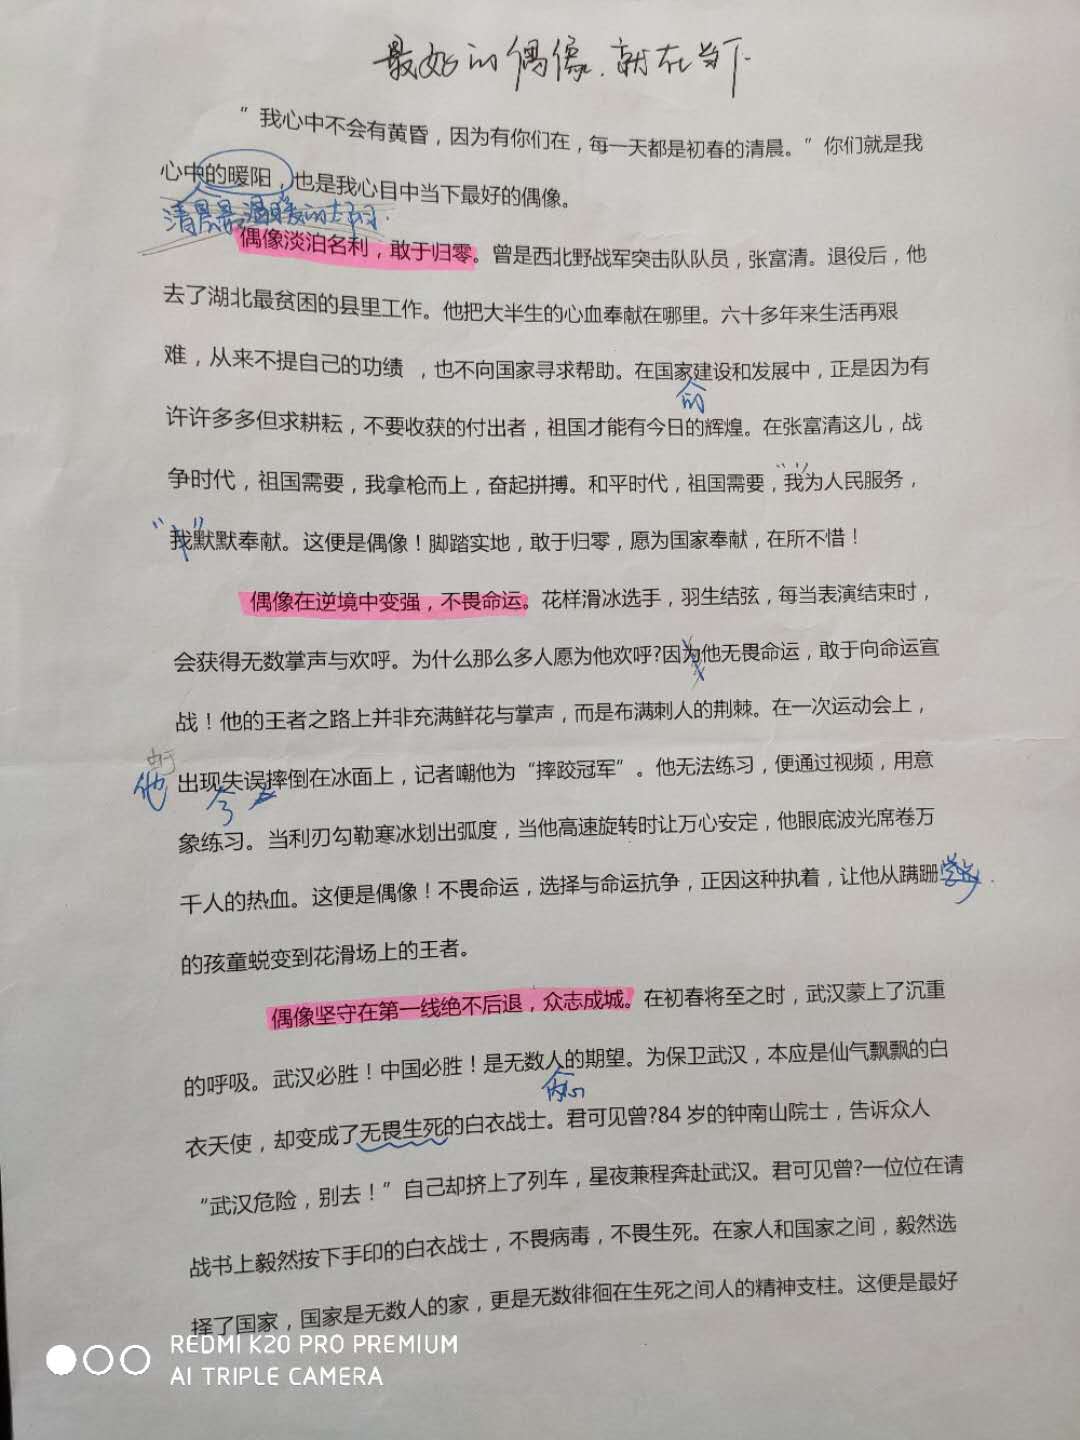 最好的偶像.就在当下
”我心中不会有黄昏，因为有你们在，每一天都是初春的清晨。”你们就是我
心中的暖阳，也是我心目中当下最好的偶像。
清晨最温暖的
偶像淡泊名利，敢于归零。曾是西北野战军突击队队员，张富清。退役后，他
去了湖北最贫困的县里工作。他把大半生的心血奉献在哪里。六十多年来生活再艰
难，从来不提自己的功绩 ，也不向国家寻求帮助。在国家建设和发展中，正是因为有
的
许许多多但求耕耘，不要收获的付出者，祖国才能有今日的辉煌。在张富清这儿，战
争时代，祖国需要，我拿枪而上，奋起拼搏。和平时代，祖国需要，“我”为人民服务，
“我”默默奉献。这便是偶像！脚踏实地，敢于归零，愿为国家奉献，在所不惜！
偶像在逆境中变强，不畏命运。花样滑冰选手，羽生结弦，每当表演结束时，
会获得无数掌声与欢呼。为什么那么多人愿为他欢呼?因为他无畏命运，敢于向命运宣
战！他的王者之路上并非充满鲜花与掌声，而是布满刺人的荆棘。在一次运动会上，
由于
他 出现失误摔倒在冰面上，记者嘲他为“摔跤冠军”。他无法练习，便通过视频，用意
了
象练习。当利刃勾勒寒冰划出弧度，当他高速旋转时让万心安定，他眼底波光席卷万
千人的热血。这便是偶像！不畏命运，选择与命运抗争，正因这种执着，让他从蹒跚
的孩童蜕变到花滑场上的王者。
偶像坚守在第一线绝不后退，众志成城。在初春将至之时，武汉蒙上了沉重
的呼吸。武汉必胜！中国必胜！是无数人的期望。为保卫武汉，本应是仙气飘飘的白
内心
衣天使，却变成了无畏生死的白衣战士。君可见曾?84 岁的钟南山院士，告诉众人
“武汉危险，别去！”自己却挤上了列车，星夜兼程奔赴武汉。君可见曾?一位位在请
战书上毅然按下手印的白衣战士，不畏病毒，不畏生死。在家人和国家之间，毅然选
择了国家，国家是无数人的家，更是无数徘徊在生死之间人的精神支柱。这便是最好
REDMI K20 PRO PREMIUM
AI TRIPLE CAMERA